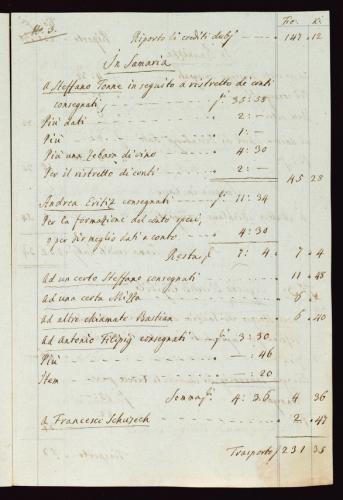 No. 3.
Fio: Ki
Riporto li crediti dubj 147 . 12
In Samaria
A Steffano Tonne in seguito a ristretto di conti
consegnati f. 35 : 58
Più dati 2 : —
Più 1 : —
Più una di vino 4 : 30
Per il ristretto di conti 2 : —
45 . 28
Andrea consegnati f. 11 : 34
Per la formazione del conto
o per dir meglio dati a conto 4 : 30
Resta f. 7 : 4 7 . 4
Ad un certo Steffano consegnati 11 . 48
Ad una certa 5 . —
Ad altre chiamate Bastian 6 . 40
Ad Antonio consegnati f. 3 : 30
Più — : 46
Item — : 20
Somma f. 4 : 36 4 36
A Francesco Schuzech 2 . 47
Trasporto 231 35